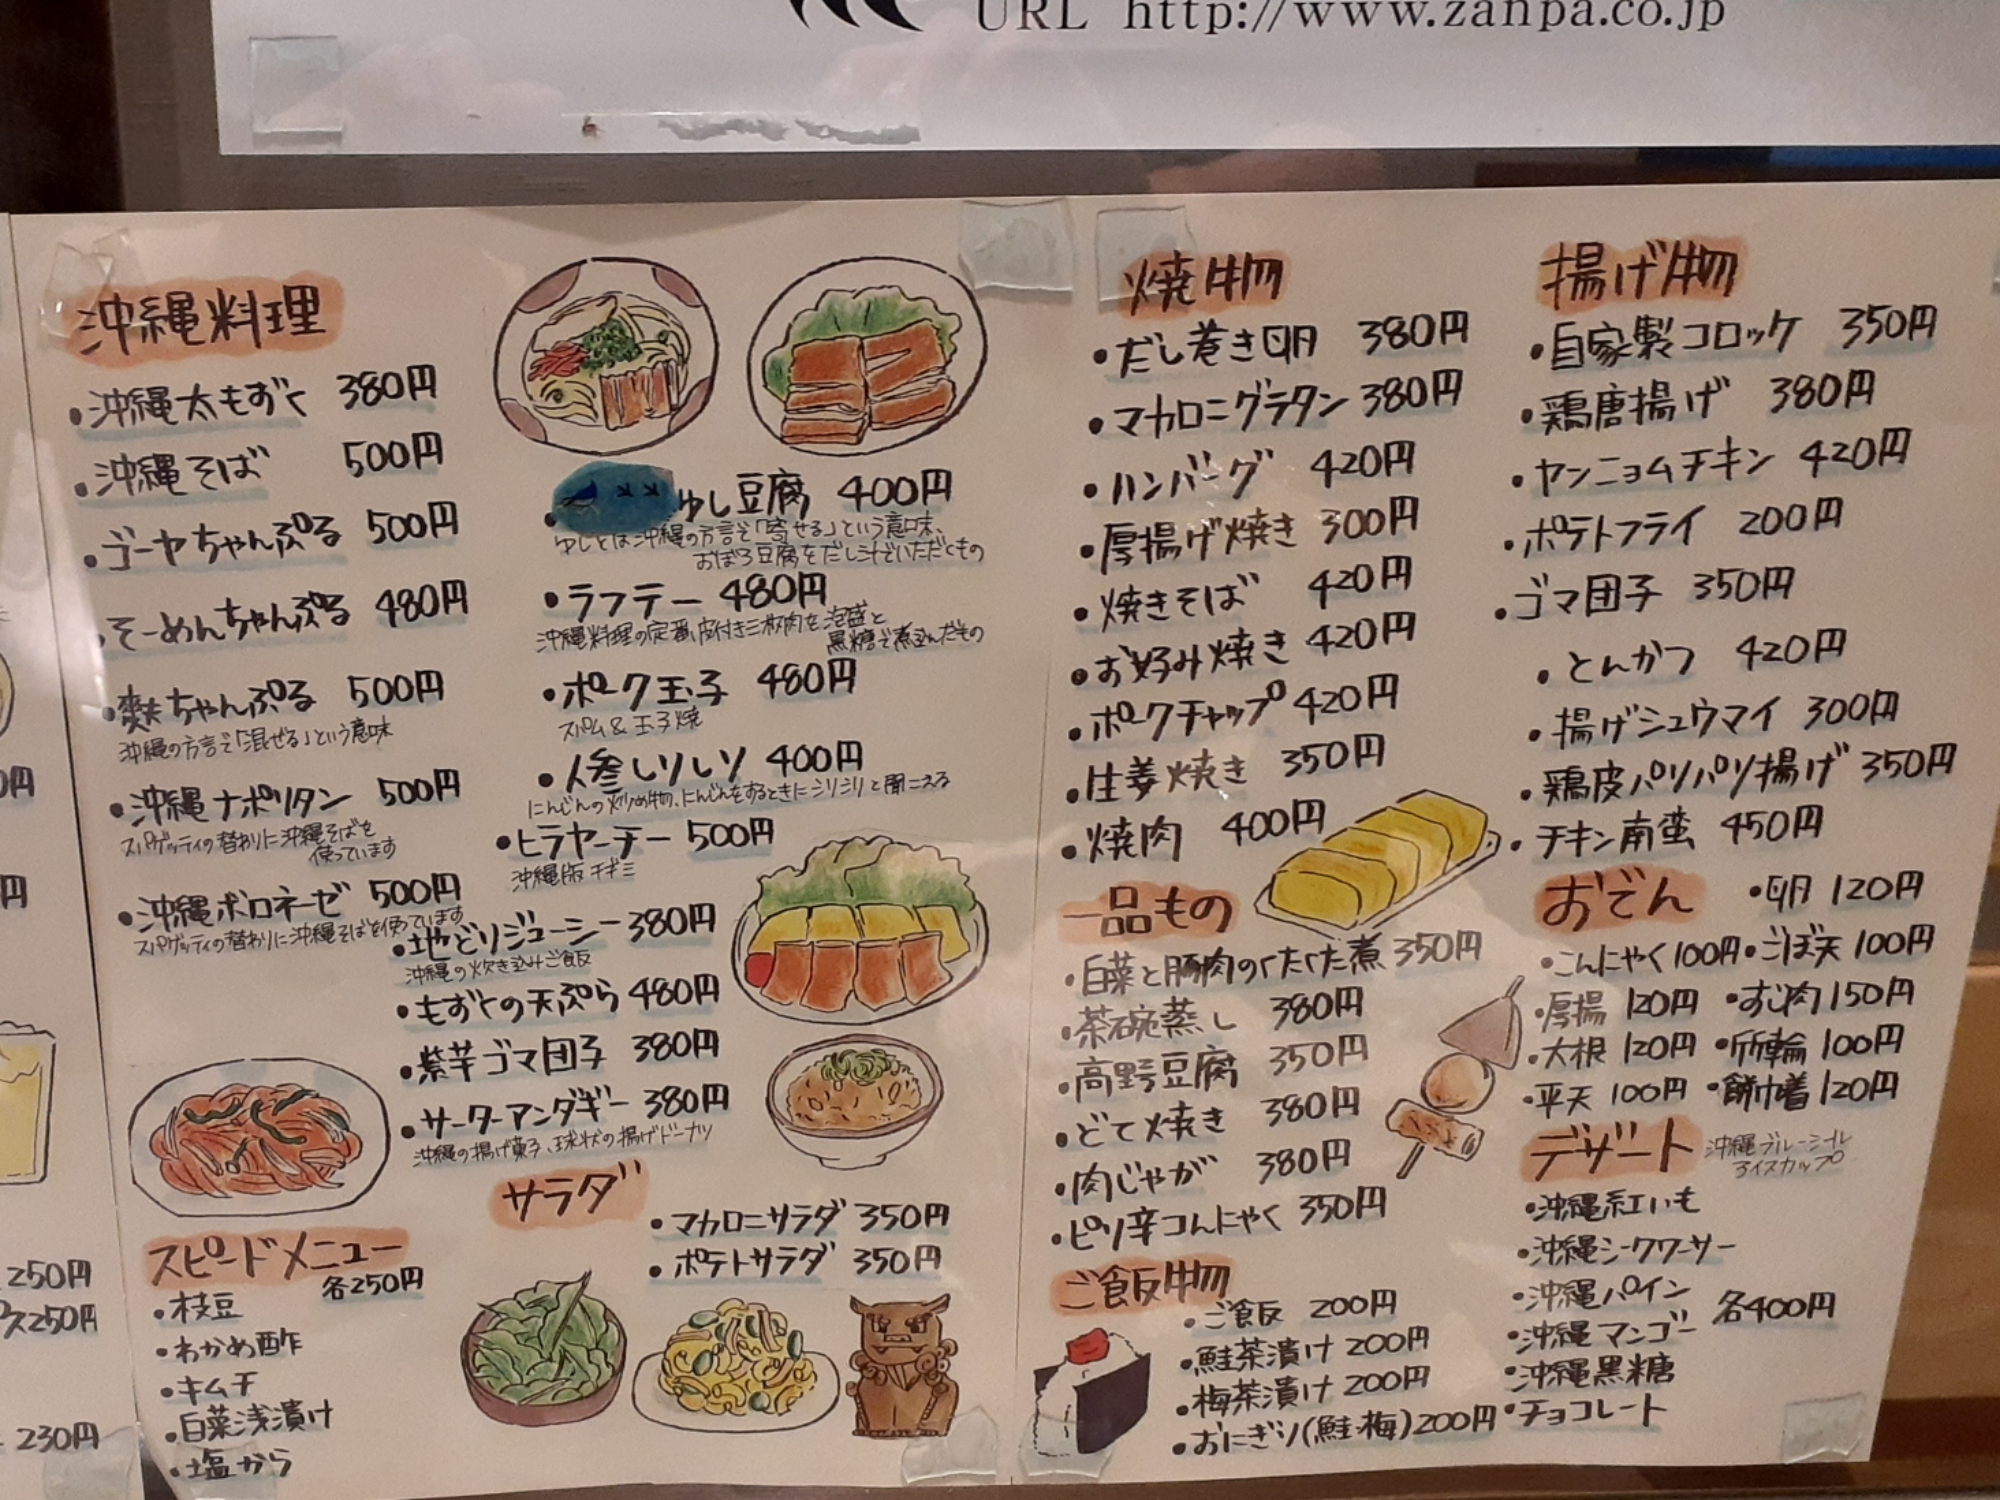 URL http://www.zanpa.co.jp
沖縄料理
・沖縄太もずく 380円
・沖縄そば 500円
・ゴーヤちゃんぷる 500円
・そーめんちゃんぷる 480円
・麩ちゃんぷる 500円
沖縄の方言で「混ぜる」という意味
・沖縄ナポリタン 500円
スパゲッティの替わりに沖縄そばを
使っています
・沖縄ボロネーゼ 500円
スパゲッティの替わりに沖縄そばを使っています
ゆし豆腐 400円
ゆしとは沖縄の方言で「寄せる」という意味、
おぼろ豆腐をだし汁でいただくもの
・ラフテー 480円
沖縄料理の定番、皮付き三枚肉を泡盛と
黒糖で煮込んだもの
・ポーク玉子 480円
スパム&玉子焼
・人参しりしり 400円
にんじんの炒め物、にんじんをするときにシリシリと聞こえる
・ヒラヤーチー 500円
沖縄版チヂミ
・地どりジューシー 380円
沖縄の炊き込みご飯
・もずくの天ぷら 480円
・紫芋ゴマ団子 380円
・サーターアンダギー 380円
沖縄の揚げ菓子、球状の揚げドーナツ
スピードメニュー
各250円
・枝豆
・わかめ酢
・キムチ
・白菜浅漬け
・塩から
サラダ
・マカロニサラダ 350円
・ポテトサラダ 350円
焼物
・だし巻き卵 380円
・マカロニグラタン 380円
・ハンバーグ 420円
・厚揚げ焼き 300円
・焼きそば 420円
・お好み焼き 420円
・ポークチャップ 420円
・生姜焼き 350円
・焼肉 400円
一品もの
・白菜と豚肉のくたくた煮 350円
・茶碗蒸し 380円
・高野豆腐 350円
・どて焼き 380円
・肉じゃが 380円
・ピリ辛こんにゃく 350円
ご飯物
・ご飯 200円
・鮭茶漬け 200円
・梅茶漬け 200円
・おにぎり(鮭・梅) 200円
揚げ物
・自家製コロッケ 350円
・鶏唐揚げ 380円
・ヤンニョムチキン 420円
・ポテトフライ 200円
・ゴマ団子 350円
・とんかつ 420円
・揚げシュウマイ 300円
・鶏皮パリパリ揚げ 350円
・チキン南蛮 450円
おでん ・卵 120円
・こんにゃく 100円 ・ごぼ天 100円
・厚揚 120円 ・すじ肉 150円
・大根 120円 ・竹輪 100円
・平天 100円 ・餅巾着 120円
デザート 沖縄ブルーシール
アイスカップ
・沖縄紅いも
・沖縄シークワーサー
・沖縄パイン
・沖縄マンゴー 各400円
・沖縄黒糖
・チョコレート
250円
250円
230円